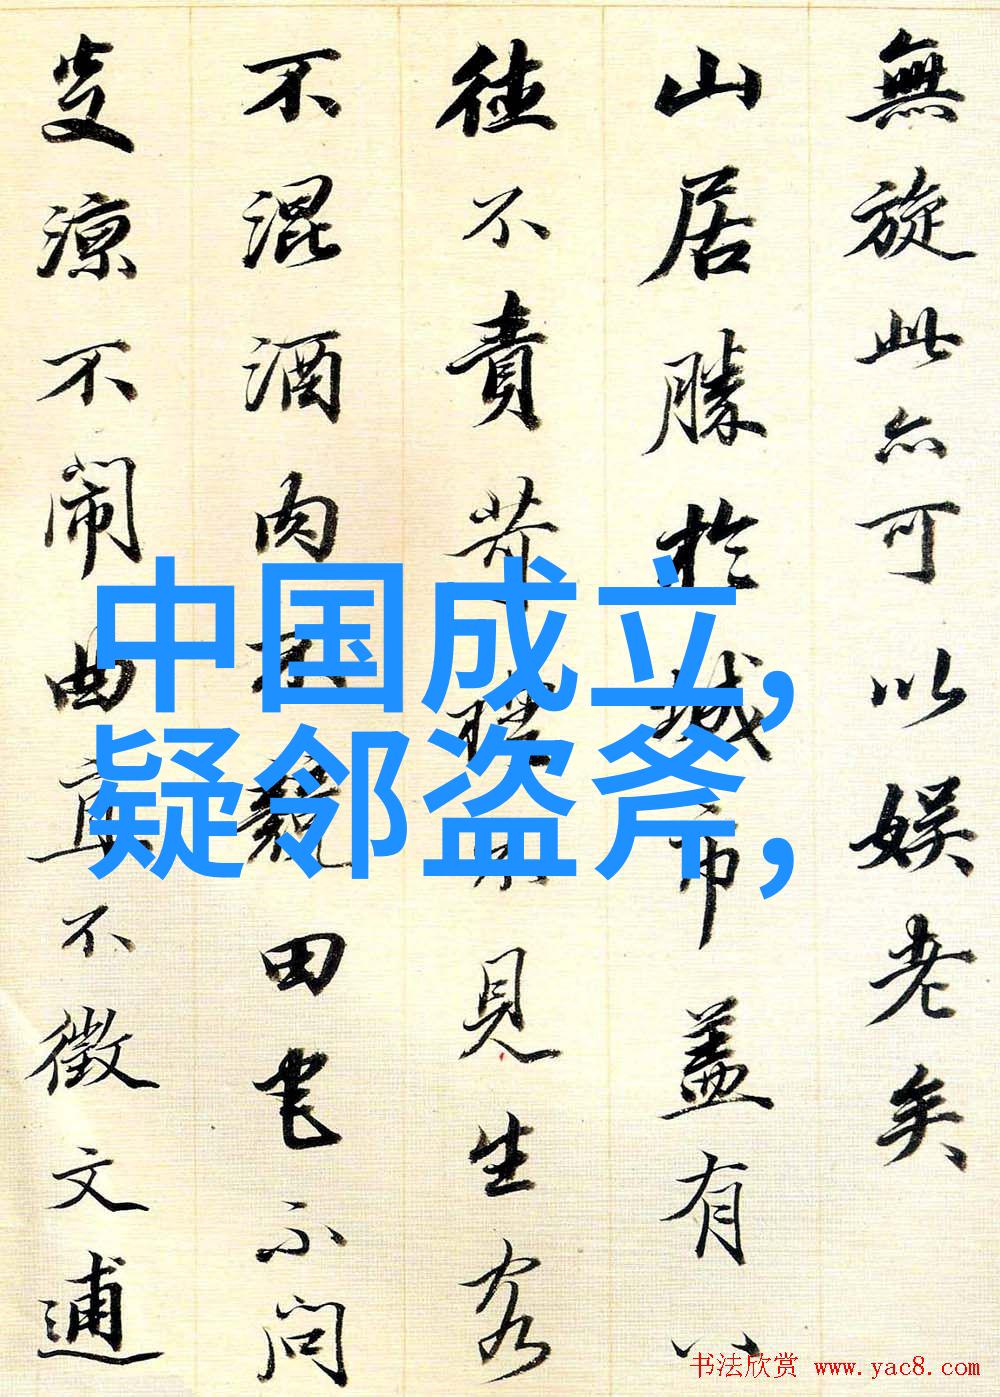 無旋此亦可以娱老矣
山居勝於城市蓋有八
德不責苛禮不見生客
不混酒肉不競田宅不問
炎涼不閙曲直不徵文逋
中国成立,
疑邻盗斧,
书法欣赏 www.yac8.com